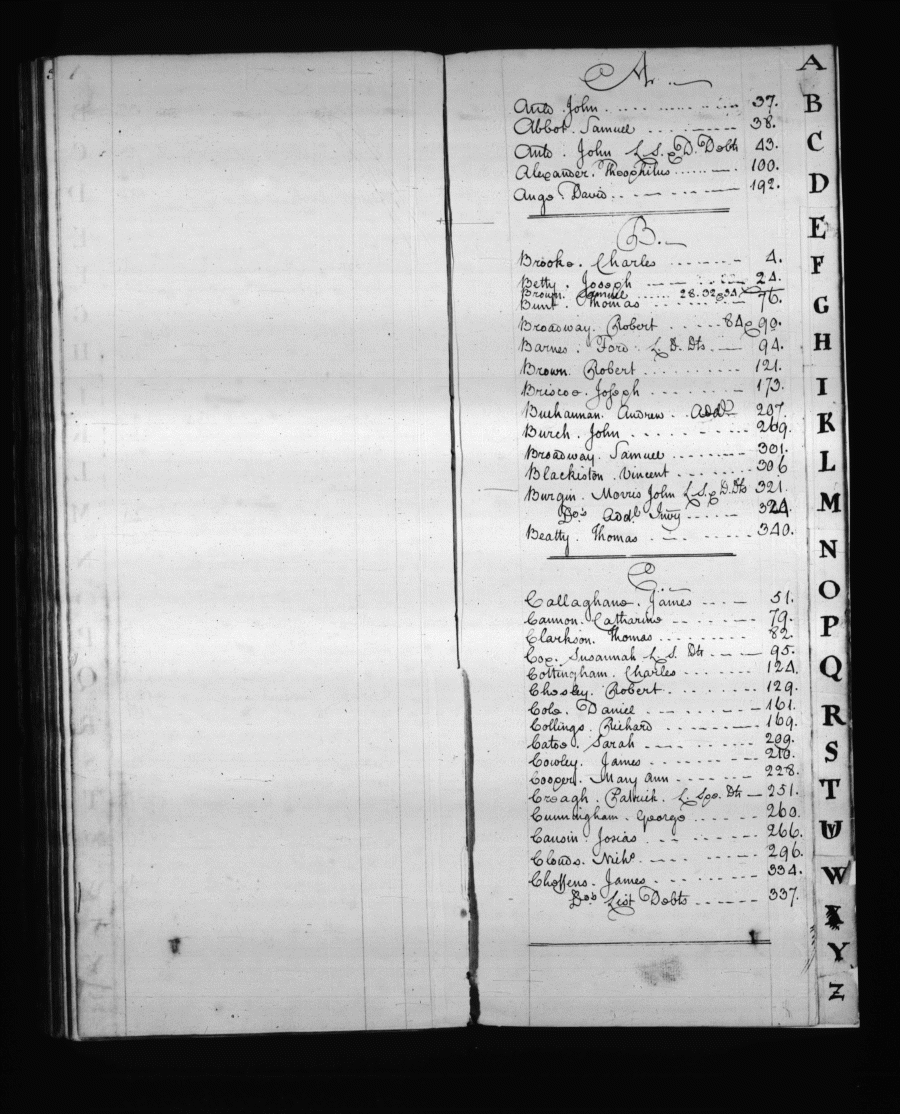 A.
Auto. John ..... 37.
Abbot. Samuel ..... 38.
Auto. John L. S. & D. Debts 43.
Alexander. Theophilus ..... 100.
Ango. David ..... 192.
B.
Brooke. Charles ..... 4.
Betty. Joseph ..... 24.
Brown. Samuel ..... 28. 32 & 34
Bunt. Thomas ..... 76.
Broadway. Robert ..... 84 & 90.
Barnes. Ford L. D. Dts ..... 94.
Brown. Robert ..... 121.
Briscoe. Joseph ..... 173.
Buchannan. Andrew .. Addl 207.
Burch. John ..... 269.
Broadway. Samuel ..... 301.
Blackiston. Vincent ..... 306
Burgin. Morris John L. S. & D. Dts 321.
Do's Addl Invy ..... 324.
Beatty. Thomas ..... 340.
C.
Callaghane. James ..... 51.
Cannon. Catharine ..... 79.
Clarkson. Thomas ..... 82.
Cox. Susannah L. S. Dts ..... 95.
Cottingham. Charles ..... 124.
Chesley. Robert ..... 129.
Cole. Daniel ..... 161.
Collings. Richard ..... 169.
Catoe. Sarah ..... 209.
Cowley. James ..... 210.
Cooper. Mary Ann ..... 228.
Creagh. Patrick. L. Spe. Dts 251.
Cunningham. George ..... 260.
Causin. Josias ..... 266.
Clouds. Nichs ..... 296.
Choffens. James ..... 334.
Do's List Debts ..... 337.
A
B
C
D
E
F
G
H
I
K
L
M
N
O
P
Q
R
S
T
W
X
Y
Z